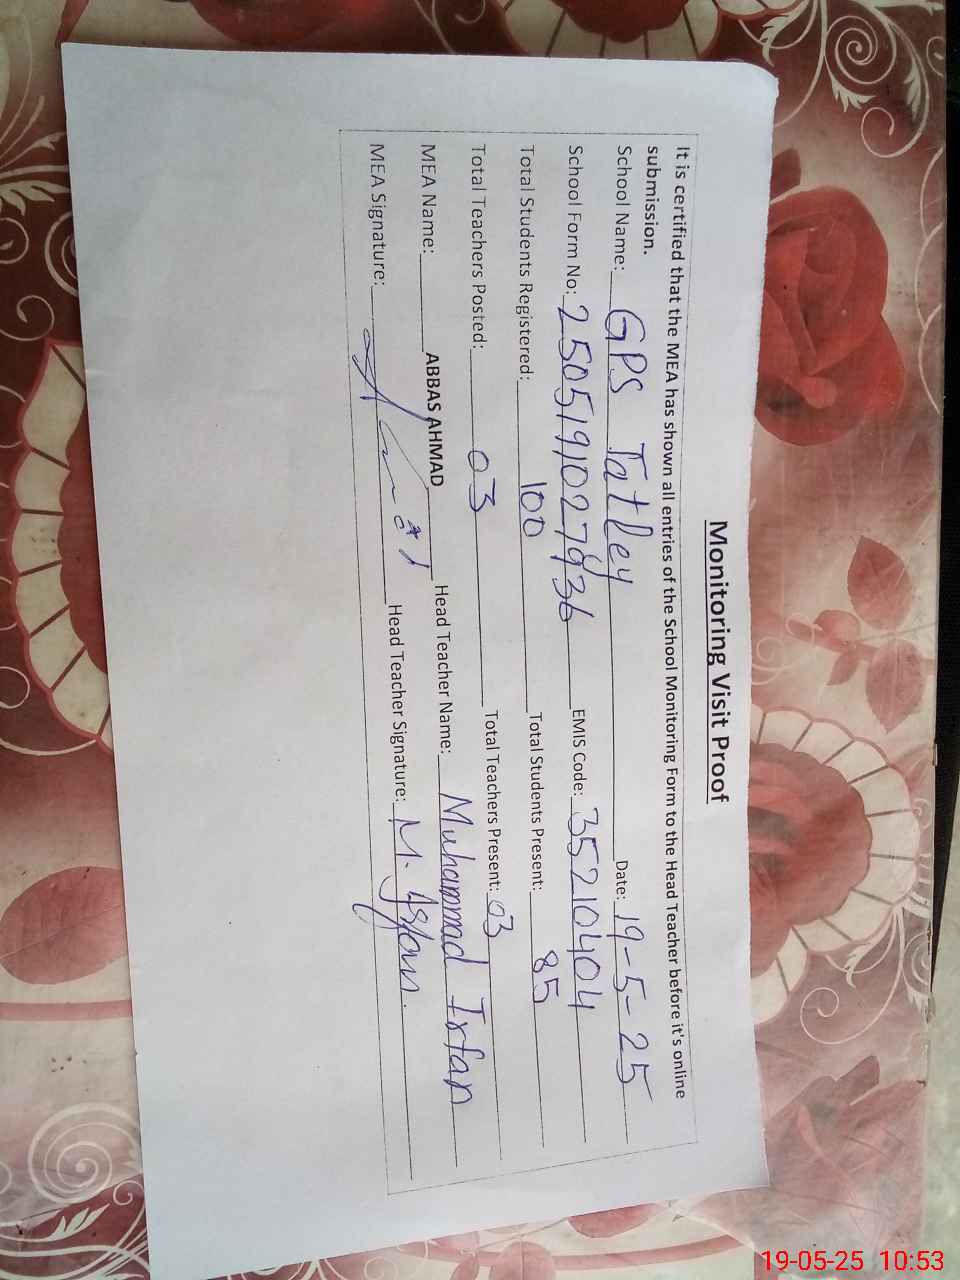 Monitoring Visit Proof
It is certified that the MEA has shown all entries of the School Monitoring Form to the Head Teacher before it's online
submission.
School Name: GPS Tatley Date: 19-5-25
School Form No: 2505191027936 EMIS Code: 35210404
Total Students Registered: 100 Total Students Present: 85
Total Teachers Posted: 03 Total Teachers Present: 03
MEA Name: ABBAS AHMAD Head Teacher Name: Muhammad Irfan
MEA Signature: Head Teacher Signature: M.
19-05-25 10:53